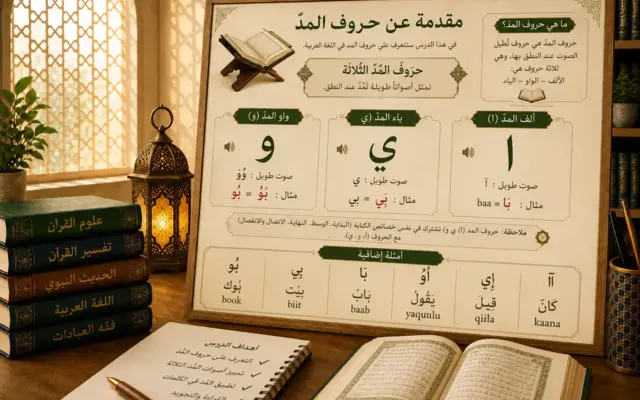 مقدمة عن حروف المدّ
في هذا الدرس ستتعرف على حروف المد في اللغة العربية.
حرَوفَ المَّدّ الثَّلاثَة
تمثل أصواتاً طويلة تُمَدّ عند النطق.
ما هي حروف المدّ؟
حروف المدّ هي حروف تُطيل
الصوت عند النطق بها، وهي
ثلاثة حروف هي:
الألف – الواو – الياء.
ألف المدّ (ا)
ا
صوت طويل : آ
مثال: بَا = baa
ياء المدّ (ي
ي
صوت طويل : ي
مثال: بَي = بي
واو المدّ (و)
و
صوت طويل : وُوَ
مثال: بَوُ = بُو
ملاحظة: حروف المد (ا) ي و) تشترك في نفس خصائص الكتابة (البداية، الوسط، النهاية، الاتصال والانفصال)
مع الحروف (أ، و، ي).
أمثلة إضافية
آآ
كَانَ
kaana
إِي
قِيلَ
qiila
أُوُ
يَقُولُ
yaquulu
بَا
بَابُ
baab
بِي
بِيْت
biit
بُو
بُوك
book
علوم القرآن
تفسير القرآن
الحديث النبوي
اللغة العربية
فقه العبادات
اهداف الدرس
التعرف على حروف المَد
تمييز أصوات المَد الثلاثة
تطبيق المَد في الكلمات